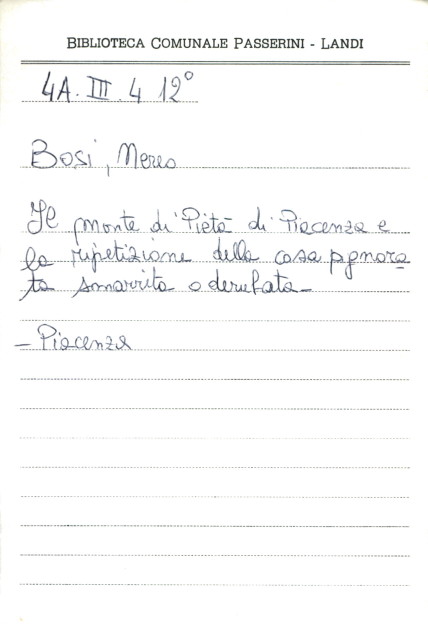 BIBLIOTECA COMUNALE PASSERINI - LANDI
4A. III. 4 12°
Bosi, Nereo
Il monte di Pietà di Piacenza e
la ripetizione della cosa pignora
ta smarrita o derubata -
- Piacenza